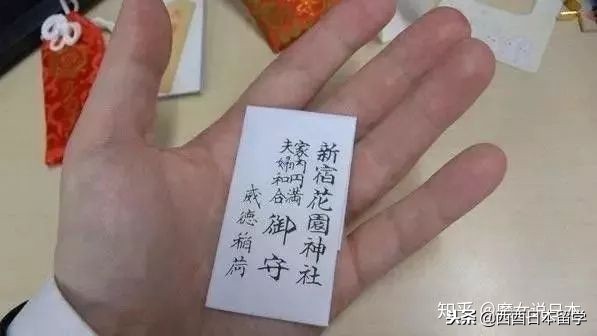 新宿花園神社
家内円満
夫婦和合
御守
威徳稲荷
知乎 @魔女说日本
头条 @西酉日本留学